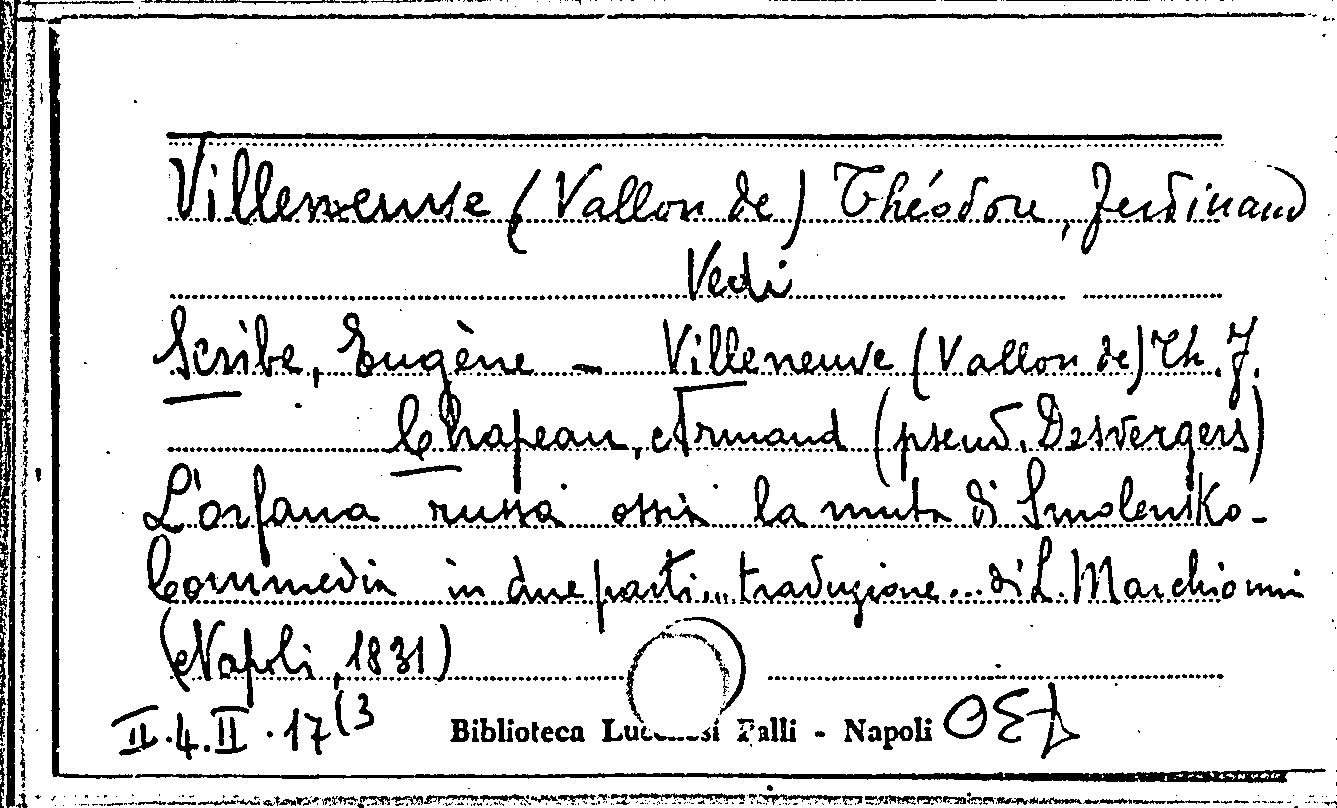 Villeneuve (Vallon de) Théodore, Ferdinand
Vedi
Scribe, Eugène - Villeneuve (Vallon de) Th. F.
Chapeau, Armand (pseud. Desvergers)
L'orfana russa ossia la muta di Smolensko-
Commedia in due parti... traduzione... di L. Marchionni
(Napoli, 1831)
II.4.II.17(3
Biblioteca Lucchesi Palli - Napoli